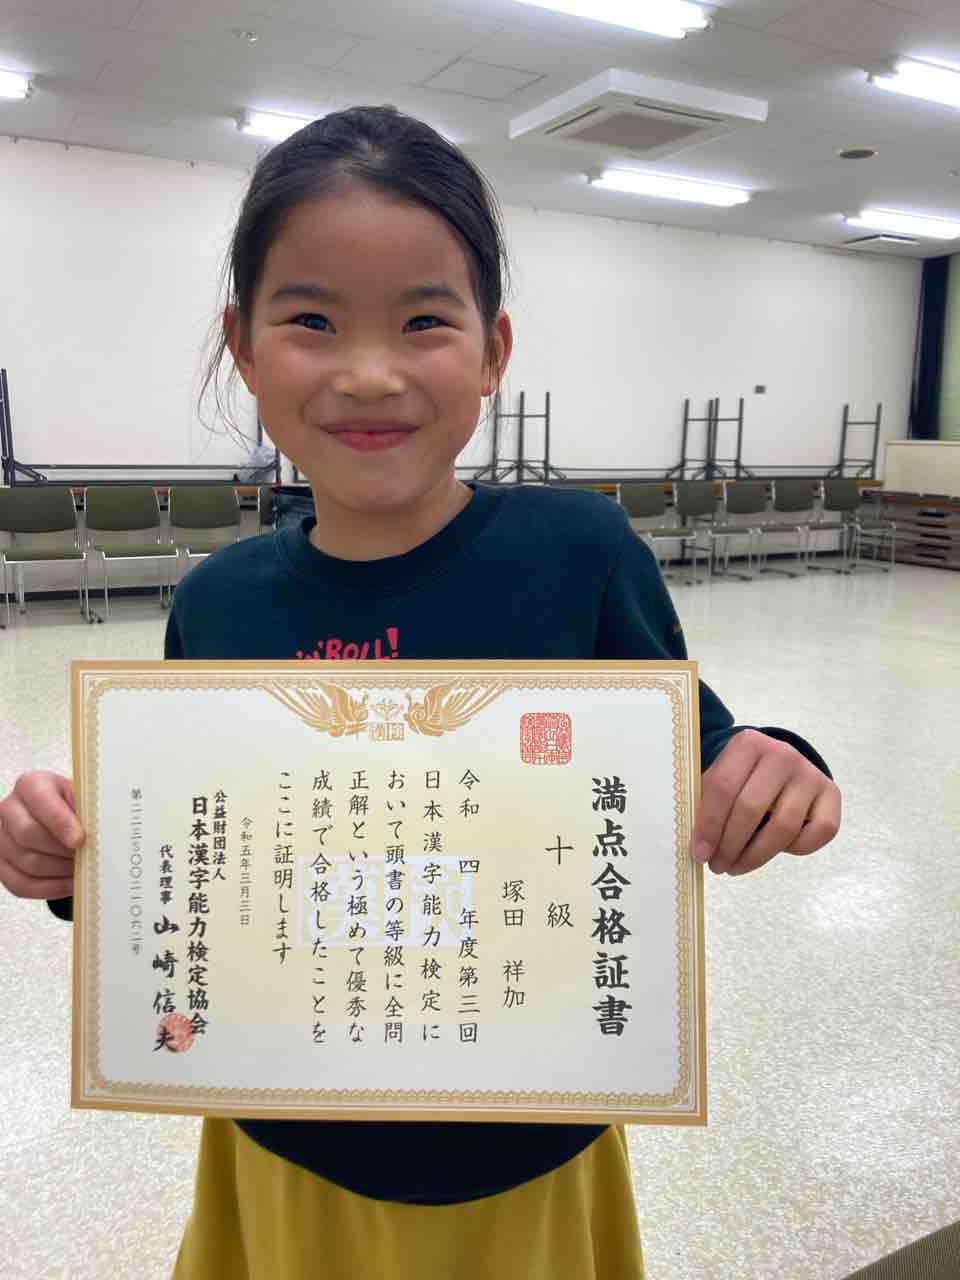 'N' ROLL!
満点合格証書
十級
塚田 祥加
令和 四 年度第三回
日本漢字能力検定に
おいて頭書の等級に全問
正解という極めて優秀な
成績で合格したことを
ここに証明します
令和五年三月三日
公益財団法人
日本漢字能力検定協会
代表理事 山崎信夫
第二二三〇〇二一〇六二号
漢検